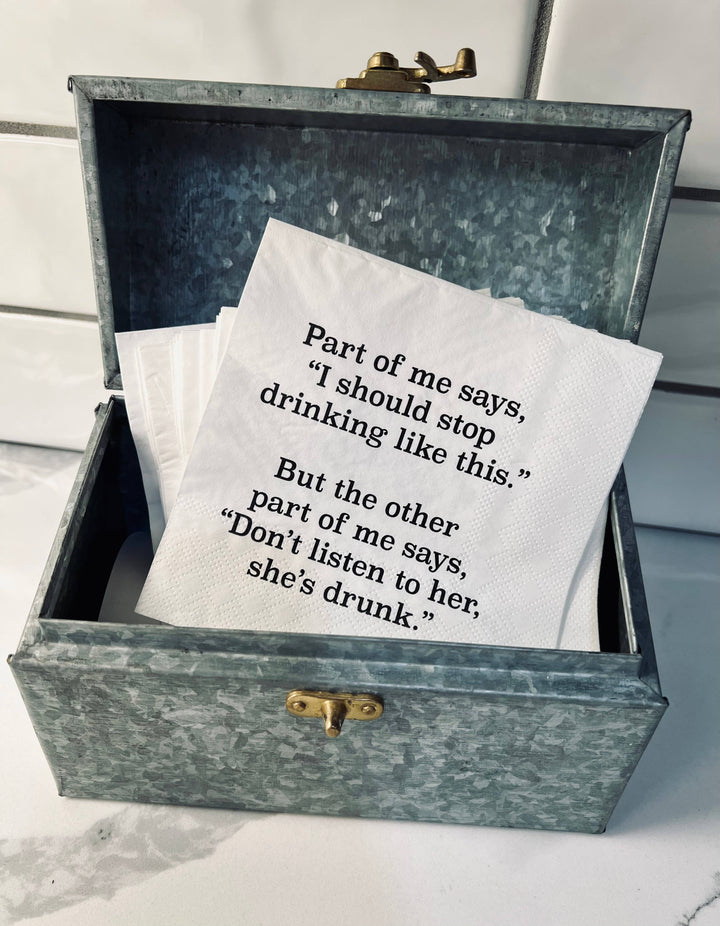 Part of me says,
“I should stop
drinking like this.”
But the other
part of me says,
“Don’t listen to her,
she’s drunk.”